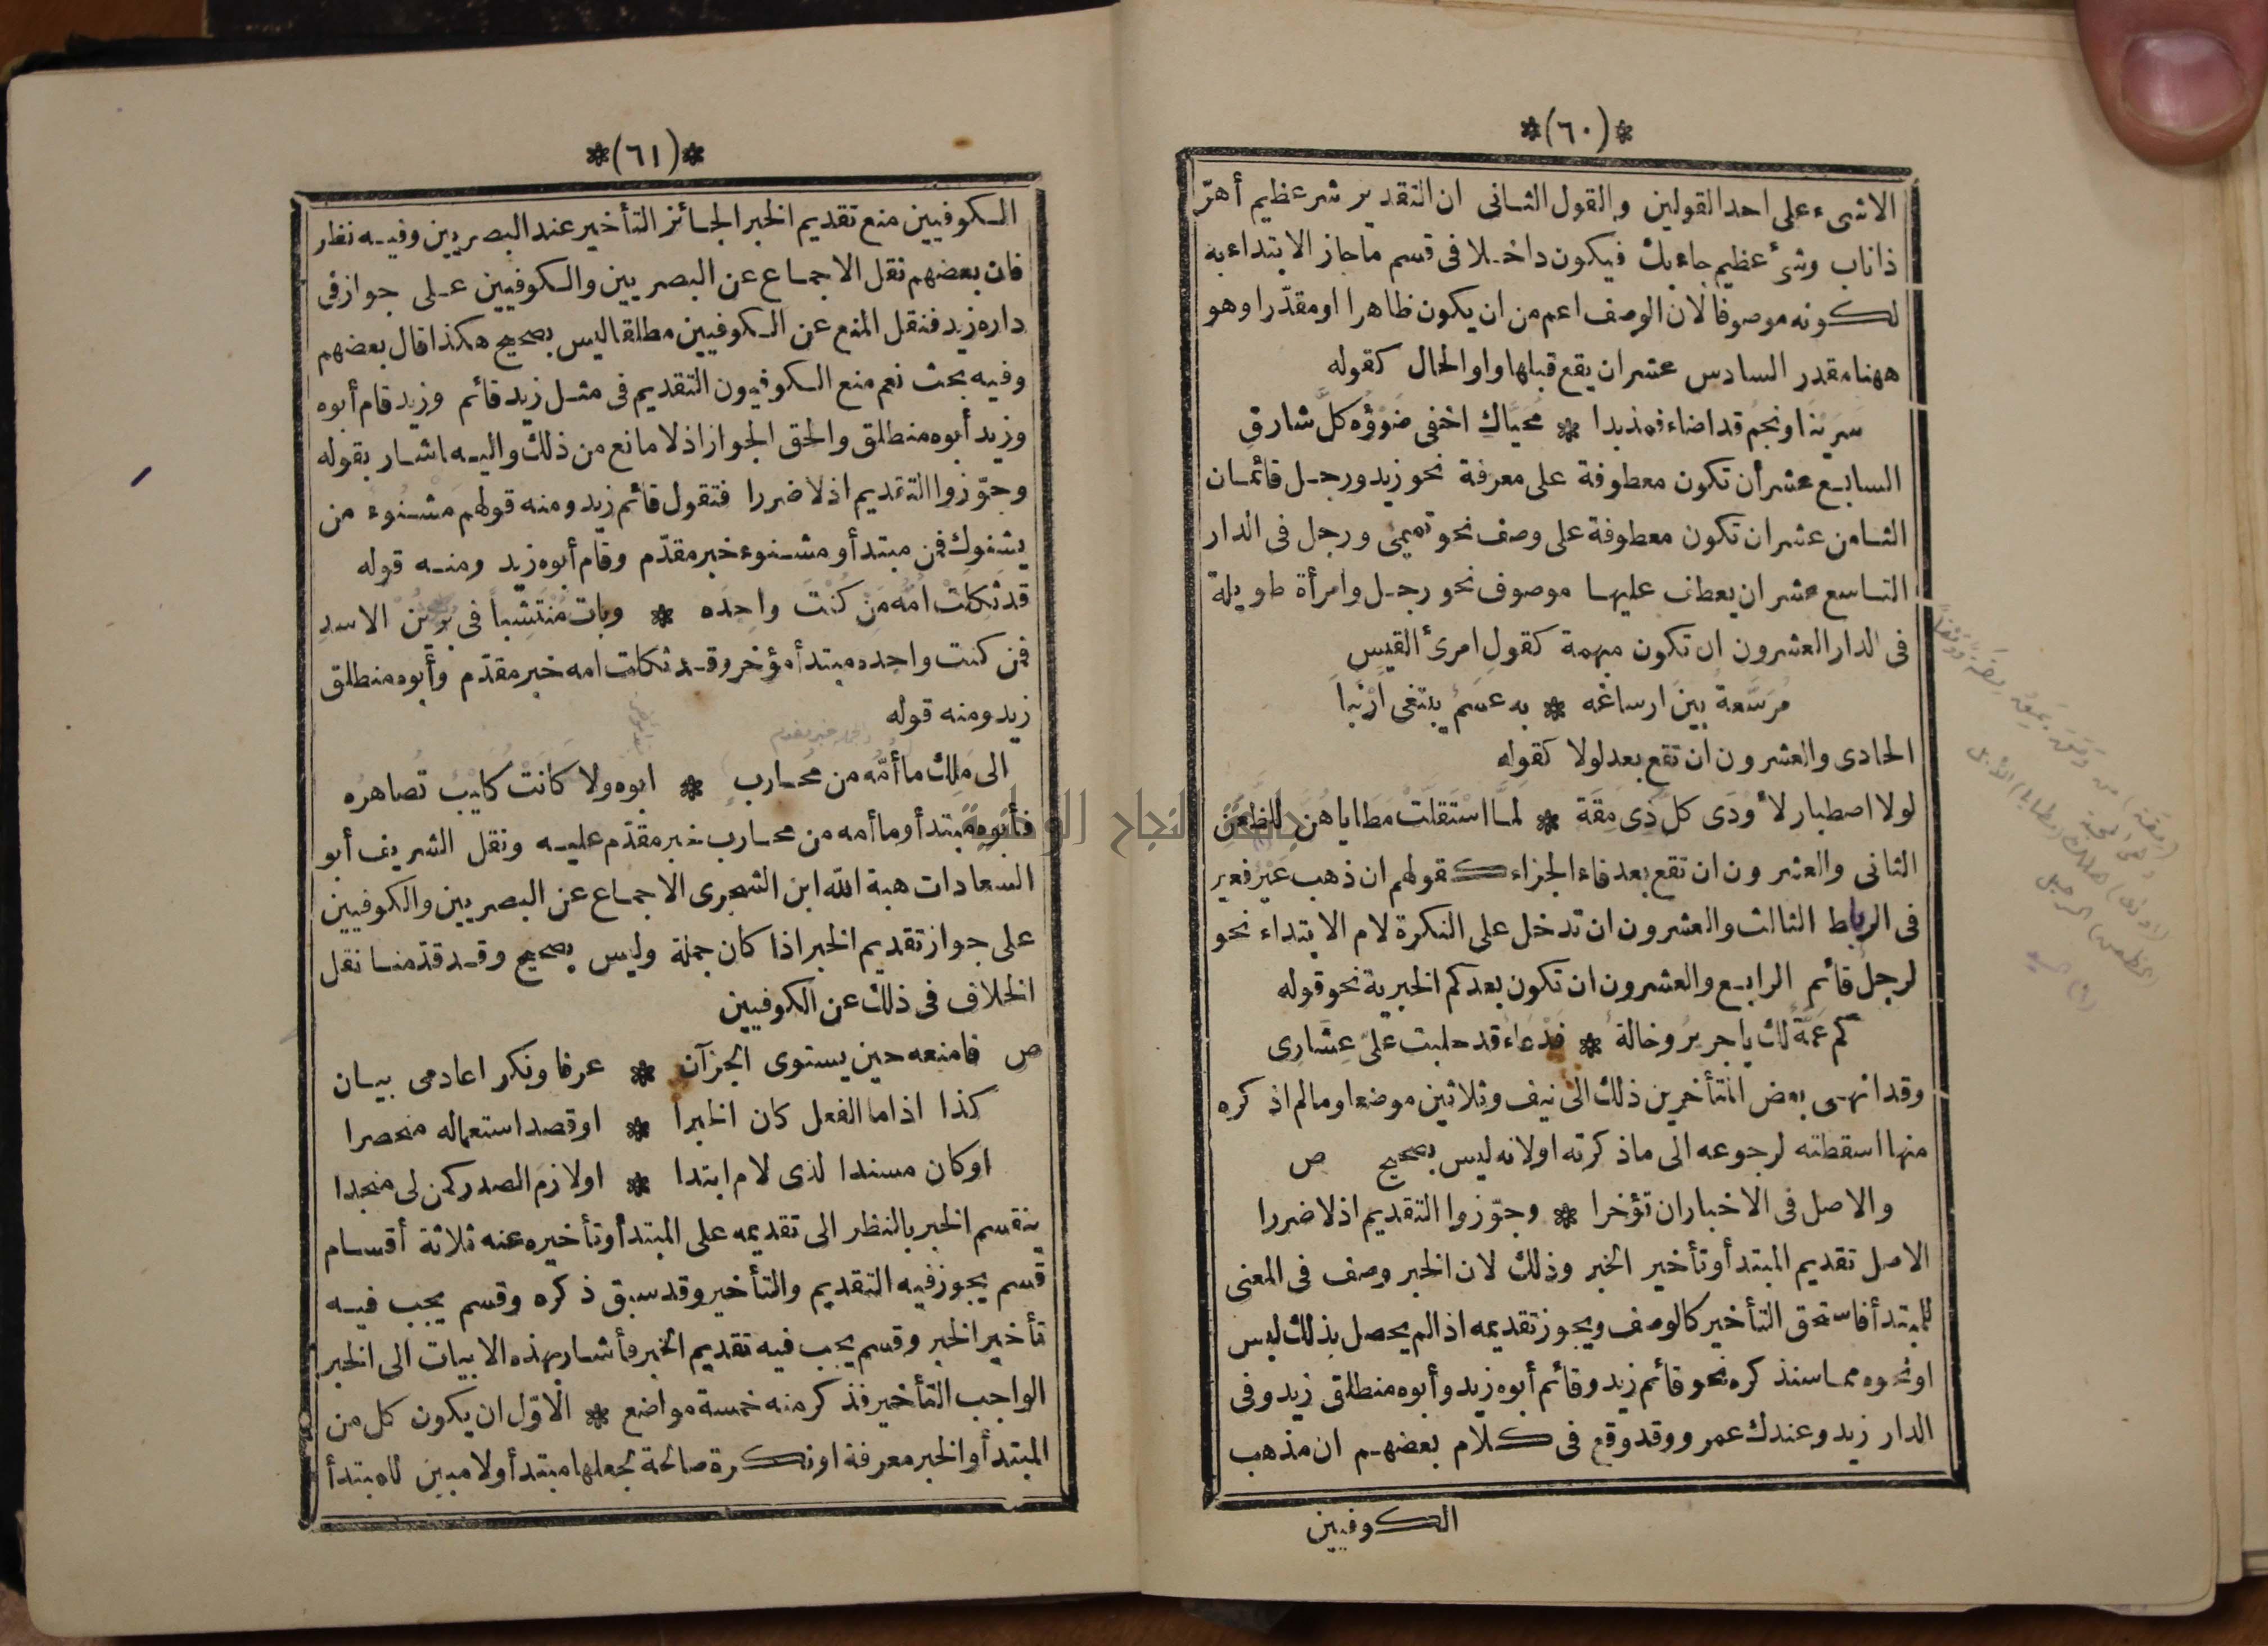 *(٦٠)*
الاشىء على احد القولين والقول الثانى ان التقدير شر عظيم أهرّ
ذا ناب وشئ عظيم جاء بك فيكون داخلا فى قسم ما جاز الابتداء به
لكونه موصوفا لان الوصف اعم من ان يكون ظاهرا او مقدّرا وهو
ههنا مقدر السادس عشر ان يقع قبلها واو الحال كقوله
سَرَيْنَا ونجمٌ قد اضاء فمذ بدا * مُحَيَّاكِ اخفى ضَوْؤُه كلَّ شارقِ
السابع عشر أن تكون معطوفة على معرفة نحو زيد ورجل قائمان
الثامن عشر ان تكون معطوفة على وصف نحو تميمى ورجل فى الدار
التاسع عشر ان يعطف عليها موصوف نحو رجل وامرأة طويلة
فى الدار العشرون ان تكون مبهمة كقول امرئ القيس
مُرَسَّعةٌ بينَ ارساغه * به عسَمٌ يبتغى ارْنَبا
الحادى والعشرون ان تقع بعد لولا كقوله
لولا اصطبار لأَوْدَى كلُّ ذِى مِقَة * لمّا استَقلّتْ مَطَاياهُنّ للظَّعَنِ
الثانى والعشرون ان تقع بعد فاء الجزاء كقولهم ان ذهب عَيْر فعير
فى الرباط الثالث والعشرون ان تدخل على النكرة لام الابتداء نحو
لرجل قائم الرابع والعشرون ان تكون بعد كم الخبرية نحو قوله
كم عَمّةٌ لك يا جريرُ وخالةٌ * فَدْعاءُ قد حلبت علىّ عِشَارِى
وقد انهى بعض المتأخرين ذلك الى نيف وثلاثين موضعا وما لم اذكره
منها اسقطته لرجوعه الى ما ذكرته اولانه ليس بصحيح ص
والاصل فى الاخبار ان تؤخرا * وجوّزوا التقديم اذ لا ضررا
الاصل تقديم المبتدأ وتأخير الخبر وذلك لان الخبر وصف فى المعنى
للمبتدأ فاستحق التأخير كالوصف ويجوز تقديمه اذا لم يحصل بذلك لبس
او نحوه مما سنذكره نحو قائم زيد وقائم أبوه زيد وأبوه منطلق زيد وفى
الدار زيد وعندك عمرو وقد وقع فى كلام بعضهم ان مذهب
الكوفيين
*(٦١)*
الكوفيين منع تقديم الخبر الجائز التأخير عند البصريين وفيه نظر
فان بعضهم نقل الاجماع عن البصريين والكوفيين على جواز فى
داره زيد فنقل المنع عن الكوفيين مطلقا ليس بصحيح هكذا قال بعضهم
وفيه بحث نعم منع الكوفيون التقديم فى مثل زيد قائم وزيد قام أبوه
وزيد أبوه منطلق والحق الجواز اذ لا مانع من ذلك واليه اشار بقوله
وجوّزوا التقديم اذ لا ضررا فتقول قائم زيد ومنه قولهم مَشْنُوءٌ من
يشنؤك فمن مبتدأ ومشنوء خبر مقدّم وقام أبوه زيد ومنه قوله
قد ثكلت امُّه مَنْ كُنْتَ واحِدَه * وبات مُنْتَشِباً فى بُرْثُنِ الاسدِ
فمن كنت واحده مبتدأ مؤخر وقد ثكلت امه خبر مقدّم وأبوه منطلق
زيد ومنه قوله
الى مَلِك ما أُمُّه من محاربٍ * ابوه ولا كانَتْ كُلَيْبٌ تُصاهرُه
فأبوه مبتدأ وما أمه من محارب خبر مقدّم عليه ونقل الشريف أبو
السعادات هبة الله ابن الشجرى الاجماع عن البصريين والكوفيين
على جواز تقديم الخبر اذا كان جملة وليس بصحيح وقد قدّمنا نقل
الخلاف فى ذلك عن الكوفيين
ص فامنعه حين يستوى الجزآن * عرفا ونكرا عادمى بيان
كذا اذا ما الفعل كان الخبرا * او قصد استعماله منحصرا
او كان مسندا لذى لام ابتدا * اولازم الصدر كمن لى منجدا
ينقسم الخبر بالنظر الى تقديمه على المبتدأ وتأخيره عنه ثلاثة أقسام
قسم يجوز فيه التقديم والتأخير وقد سبق ذكره وقسم يجب فيه
تأخير الخبر وقسم يجب فيه تقديم الخبر فأشار بهذه الابيات الى الخبر
الواجب التأخير فذكر منه خمسة مواضع * الاوّل ان يكون كل من
المبتدأ والخبر معرفة او نكرة صالحة لجعلها مبتدأ ولا مبين للمبتدأ
جامعة النجاح الوطنية